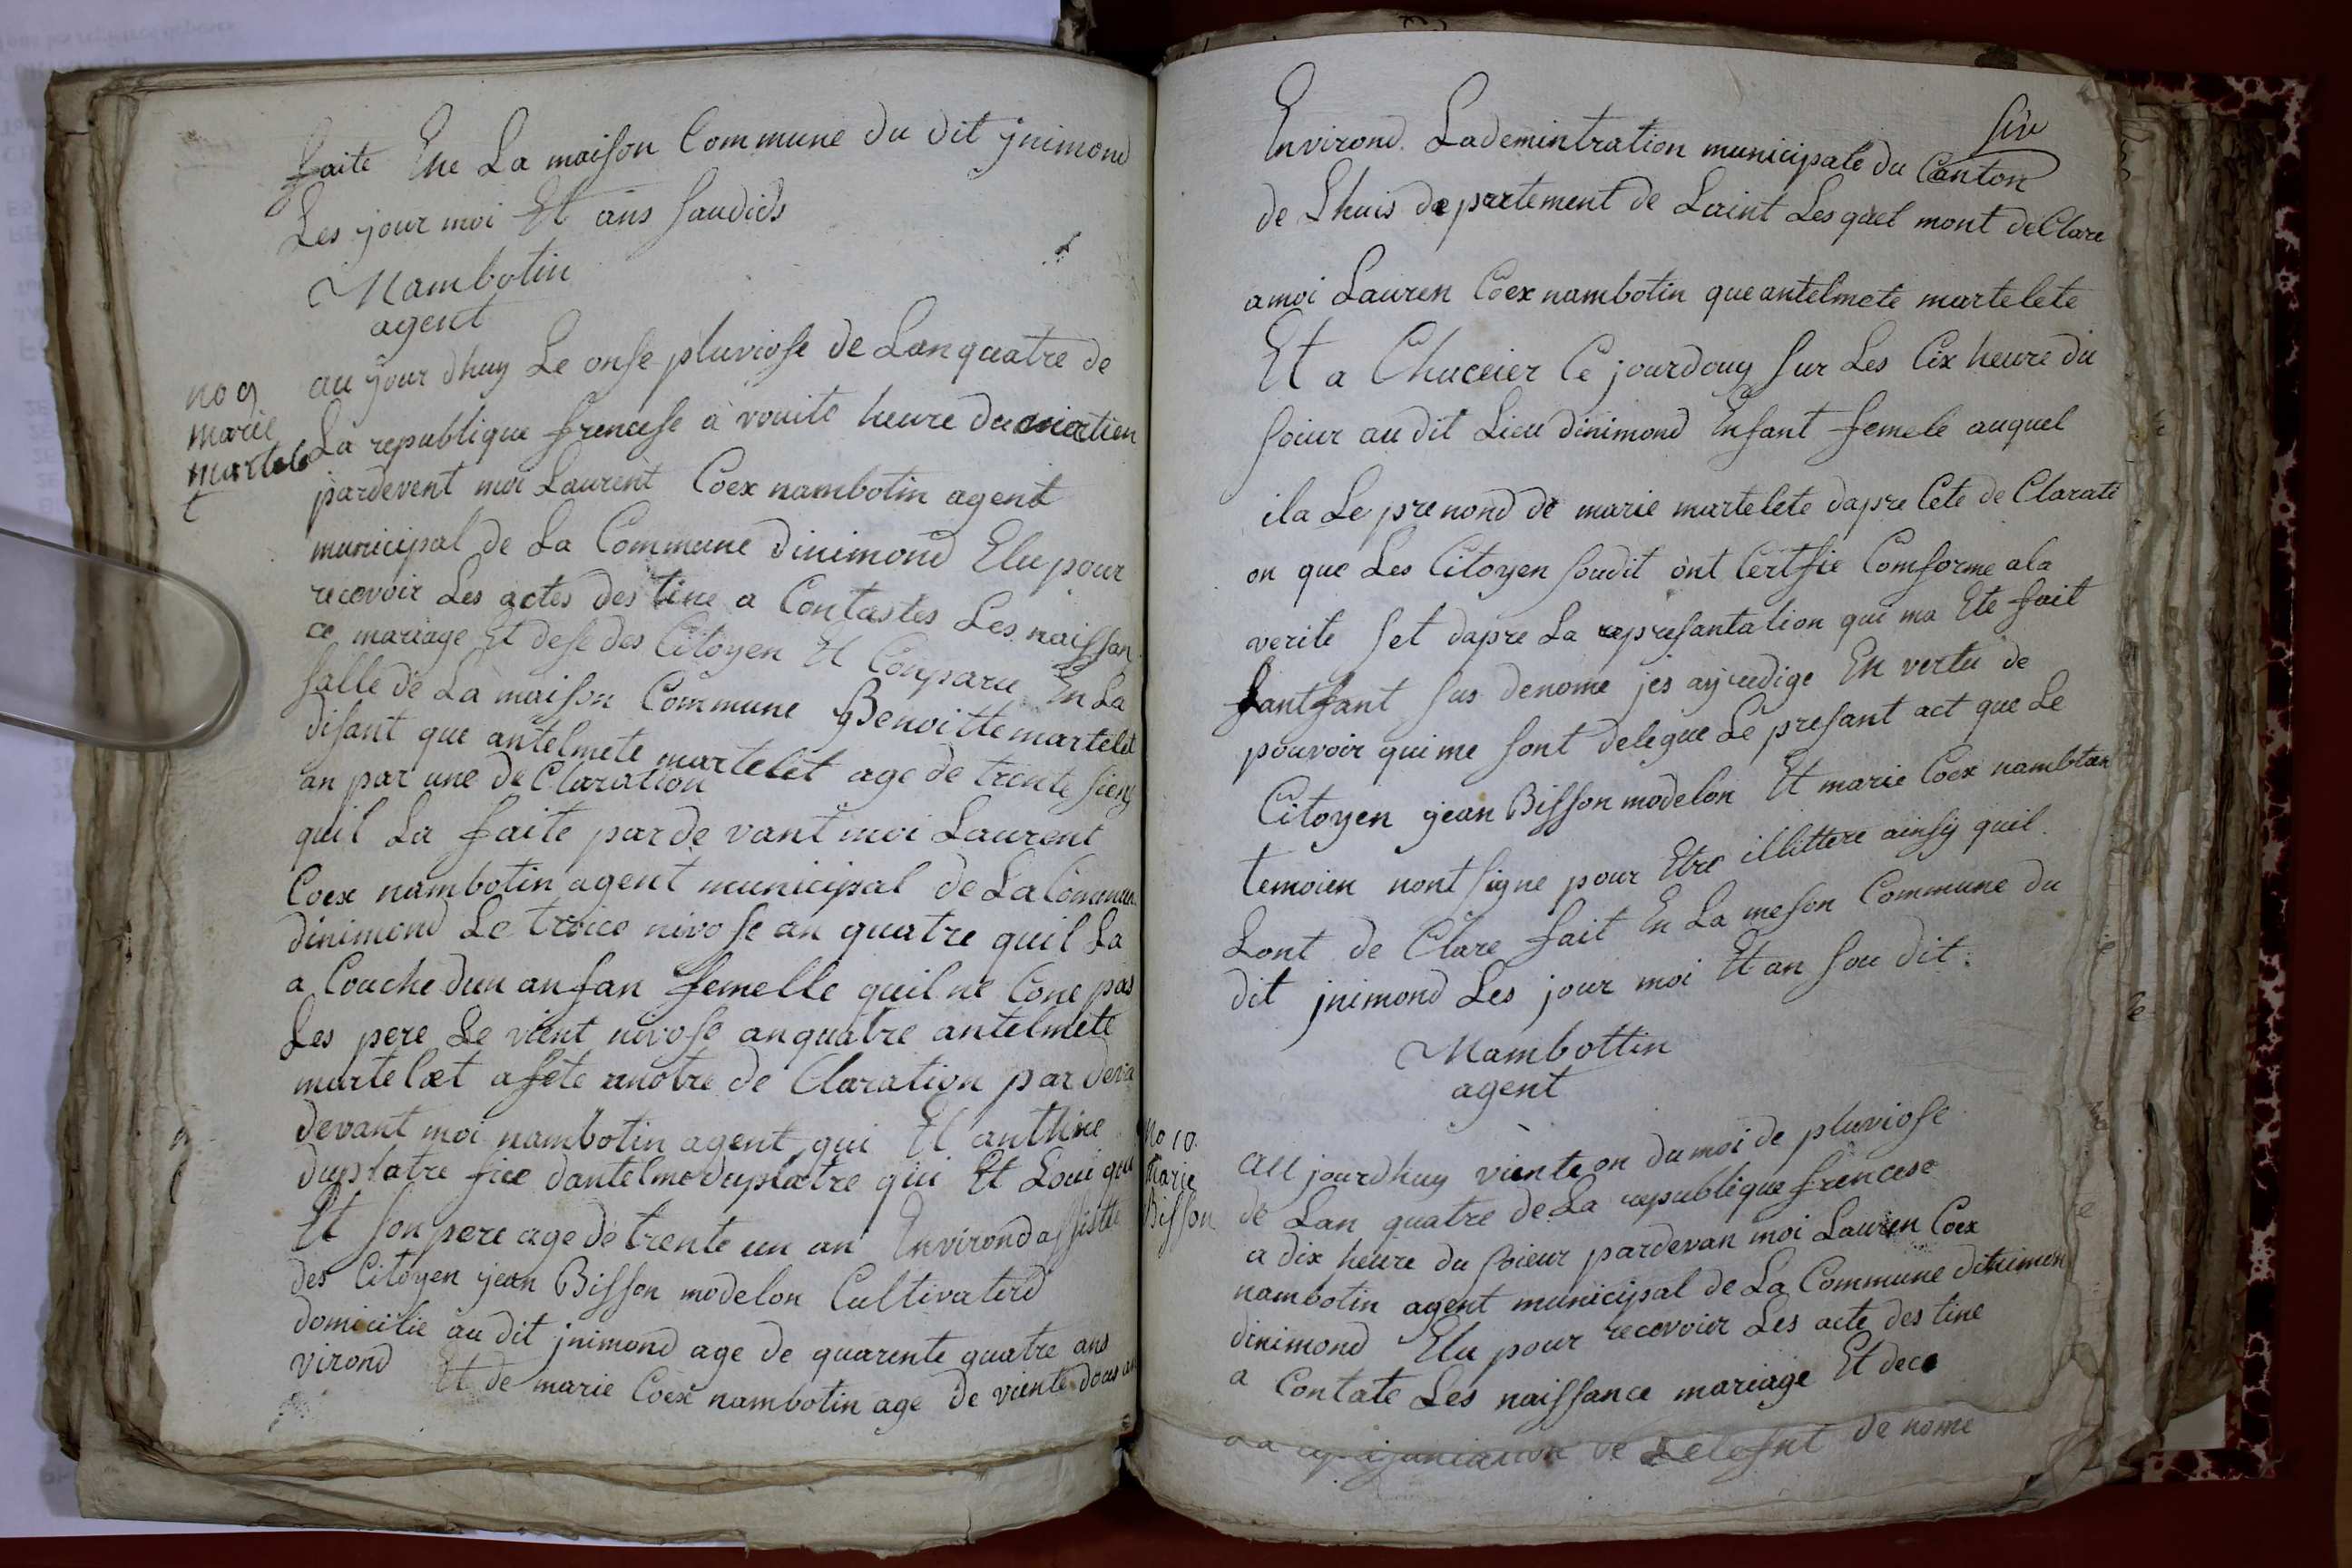 faite Ene La maison Commune du dit jnimond
Les jour moi Et ans saudids
Nambotin
agent
no 9
marie
martele
t
au jour dhuy Le onse pluviose de Lan quatre de
La republique francese à vouite heure du matien
pardevent moi Laurent Coex nambotin agent
municipal de La Commune dinimond Elu pour
recevoir Les actes des tine a Contastes Les naissan
ce mariage Et dese des Citoyen Et Conparu En La
salle de La maison Commune Benoitte martelet
disant que antelmete martelet age de trente sienq
an par une de Claration
quil La faite par de vant moi Laurent
Coex nambotin agent municipal de La Commun
dinimond Le troice nivose an quatre quil La
a Couche dun anfan femelle quil ne Cone pas
Les pere Le vient nivose an quatre antelmete
martelet a fete anotre de Claration par deva
devant moi nambotin agent qui Et anthine
duplatre fice dantelme duplatre qui Et Loui que
Et son pere age de trente un an Environd assistte
des Citoyen jean Bisson modelon Cultivaterd
domicilie au dit jnimond age de quarente quatre ans
virond Et de marie Coex nambotin age de viente dous an
siv
Environd. Lademintration municipale du Canton
de Lhuis deprtement de Laint Les quel mont de Clare
a moi Lauren Coex nambotin que antelmete martelete
Et a Chuceier Ce jourdouy sur Les Cix heure du
soiur au dit Lieu dinimond Enfant femele auquel
il a Le prenond de marie martelete dapre Cete de Clarati
on que Les Citoyen soudit ont Certfie Comforme a la
verite set dapre La represantation qui ma Ete fait
Lantfant sus denome jes ay redige En vertu de
pouvoir qui me sont delegue Le presant act que Le
Citoyen jean Bisson modelon Et marie Coex nambtan
temoien nont signe pour Etre illittere ainsy quil
Lont de Clare fait En La meson Commune du
dit jnimond Les jour moi Et an sou dit.
Nambottin
agent
No 10.
Marie
Bisson
au jourdhuy viente on du moi de pluviose
de Lan quatre de La republique francese
a dix heure du soieur pardevan moi Lauren Coex
nambotin agent municipal de La Commune dinimon
dinimond Elu pour recevoier Les acte des tine
a Contate Les naissance mariage Et dece
de nome